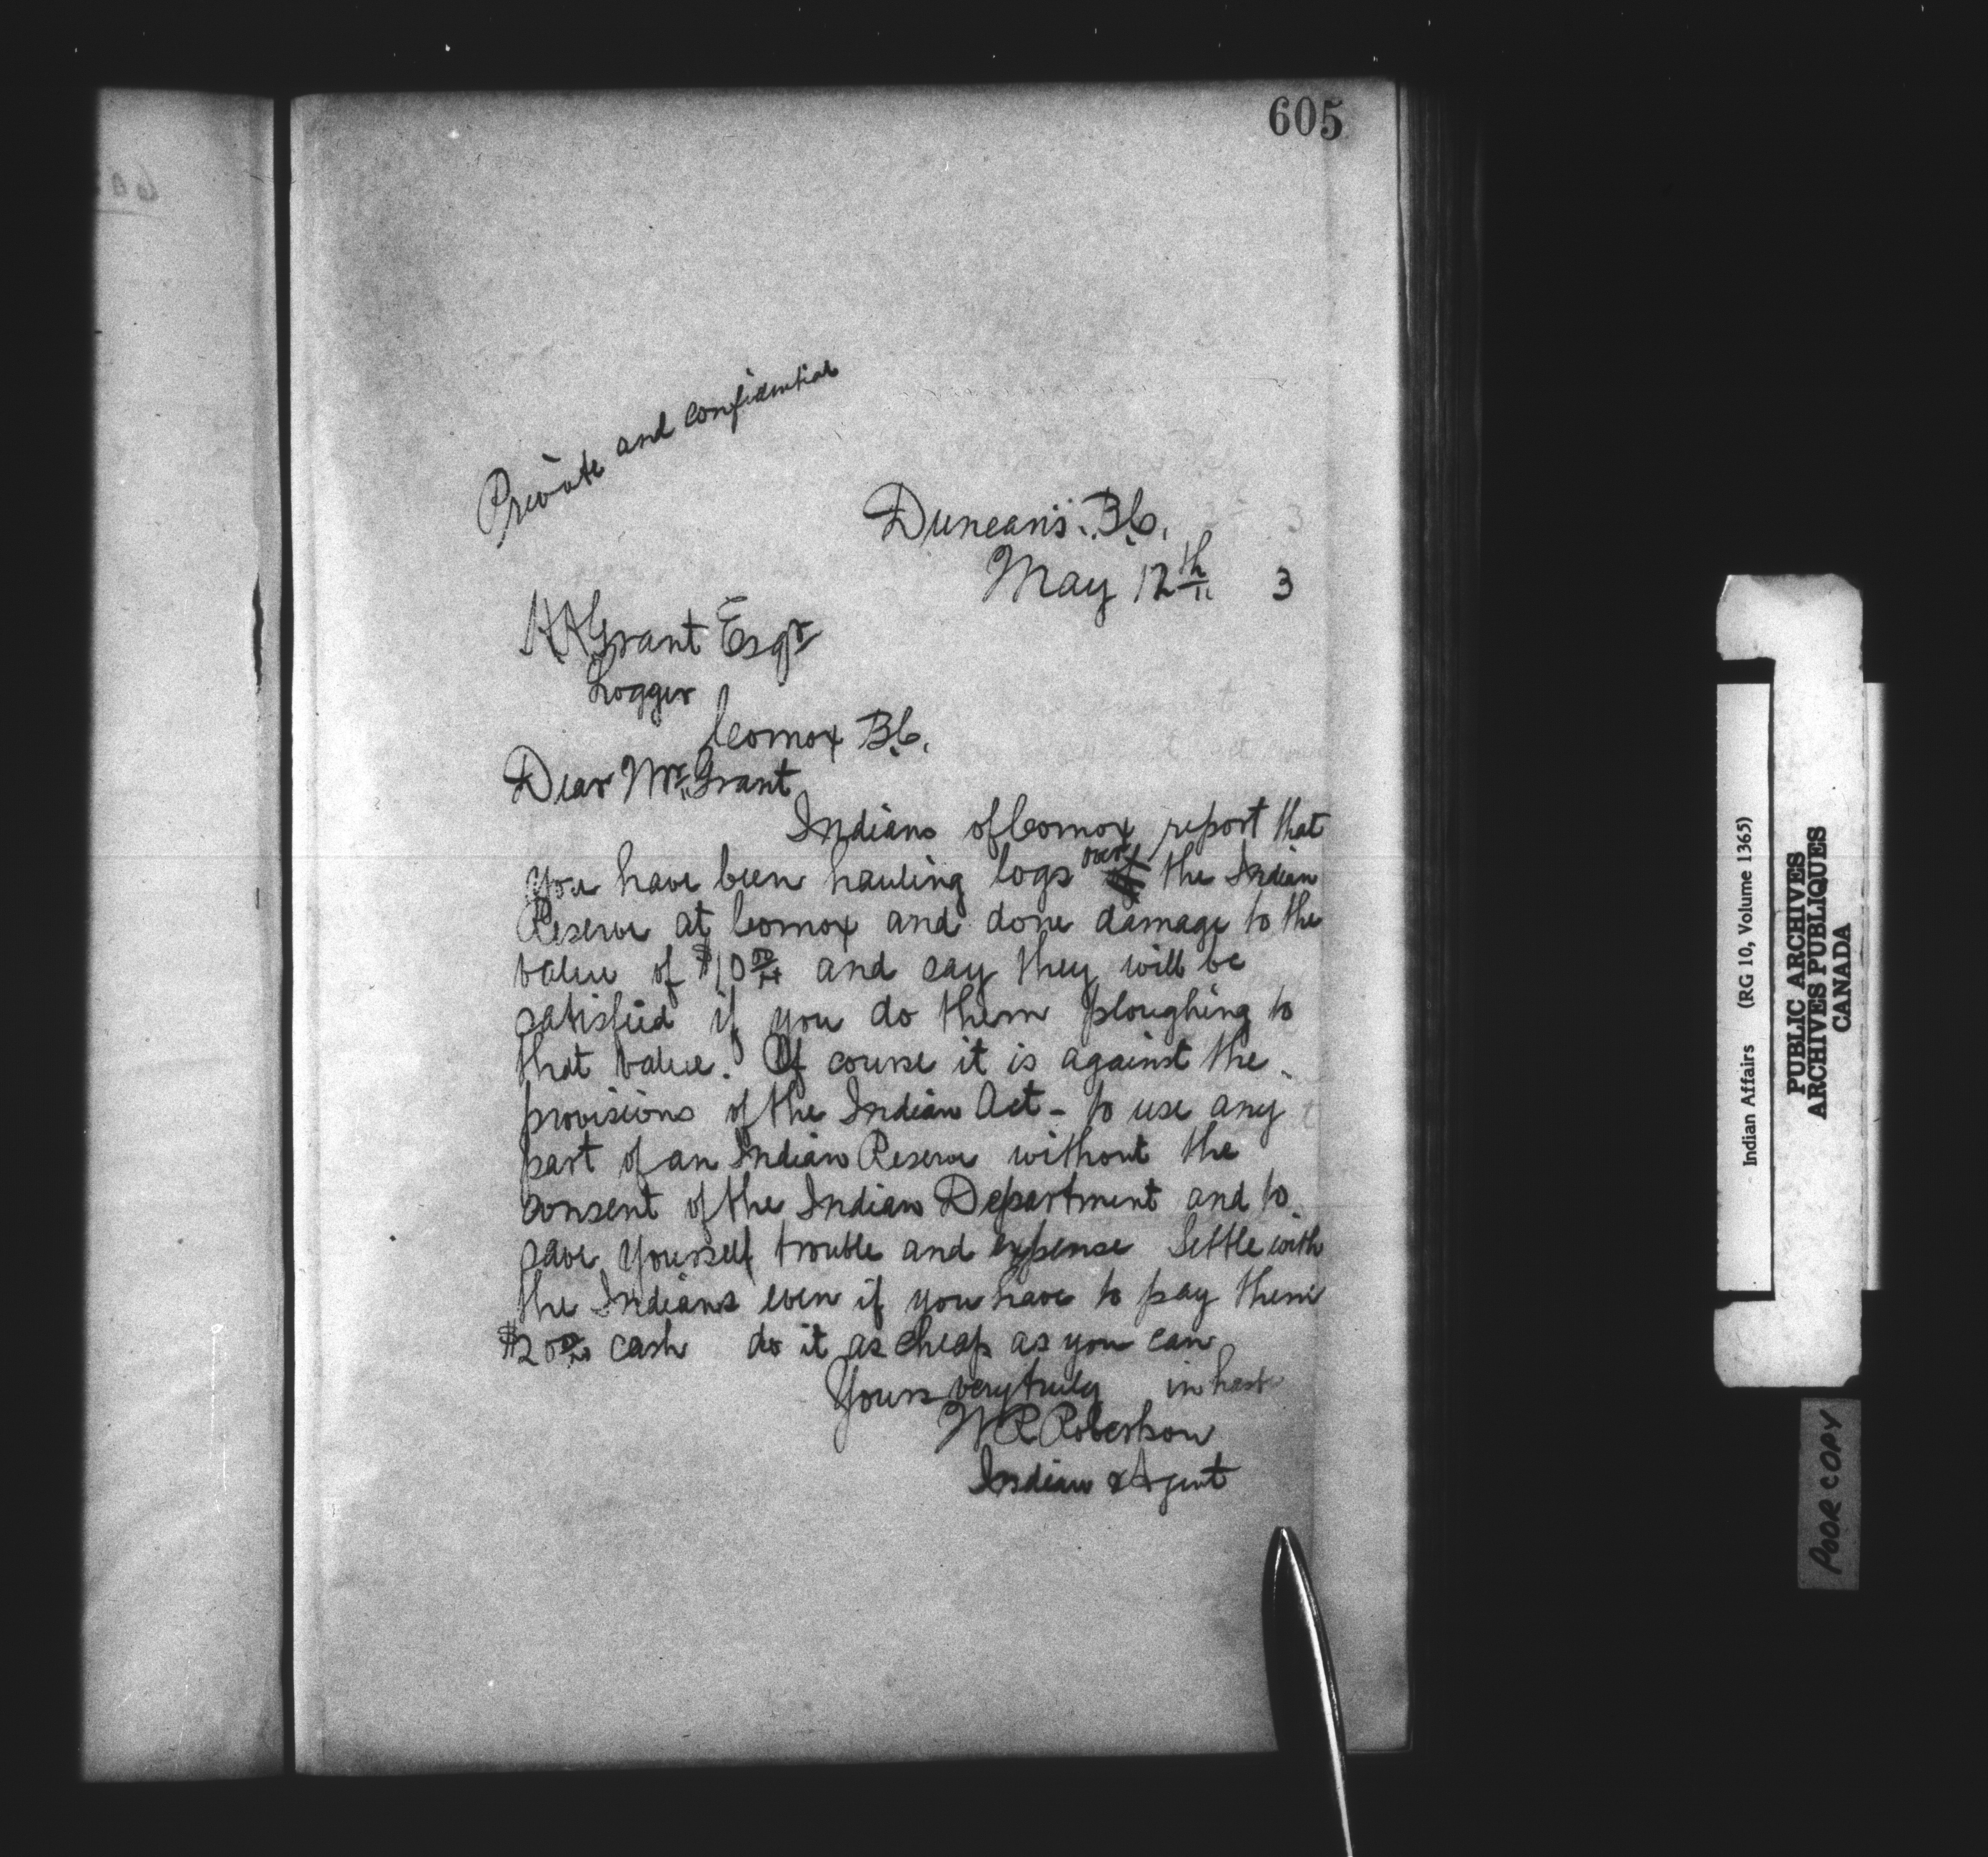 605
Private and confidential
Duncan's. B.C.
May 12th 3
Grant Esqr
Logger
Comox B.C.
Dear Mr. Grant
Indians of Comox report that
you have been hauling logs over the Indian
Reserve at Comox and done damage to the
value of $10 00 and say they will be
satisfied if you do them ploughing to
that value. Of course it is against the
provisions of the Indian Act - to use any
part of an Indian Reserve without the
consent of the Indian Department and to
save yourself trouble and expense Settle with
the Indians even if you have to pay them
$20 00 cash do it as cheap as you can
Yours very truly in haste
W R Robertson
Indian Agent
Indian Affairs (RG 10, Volume 1365)
PUBLIC ARCHIVES
ARCHIVES PUBLIQUES
CANADA
POOR COPY